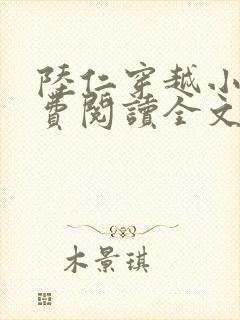 陸仁穿越小
費閱讀全文
木景琪